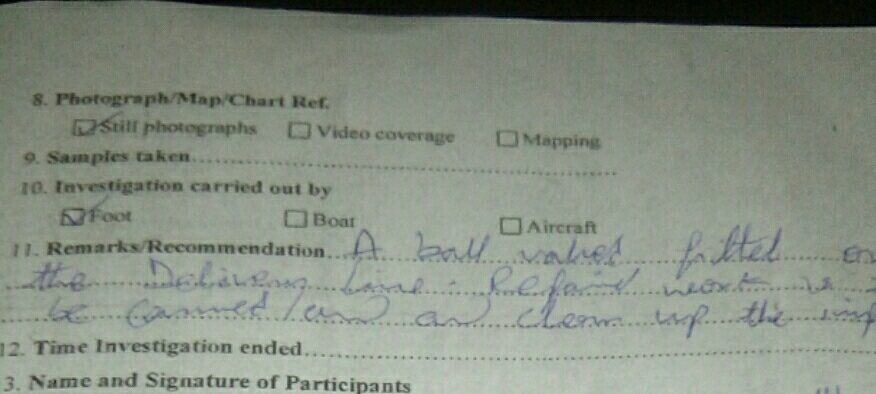 8. Photograph/Map/Chart Ref.
Still photographs Video coverage Mapping
9. Samples taken
10. Investigation carried out by
Foot Boat Aircraft
11. Remarks/Recommendation. A ball valve fitted on
the Delivery line. Repair work is
be carried and clean up the
12. Time Investigation ended
3. Name and Signature of Participants